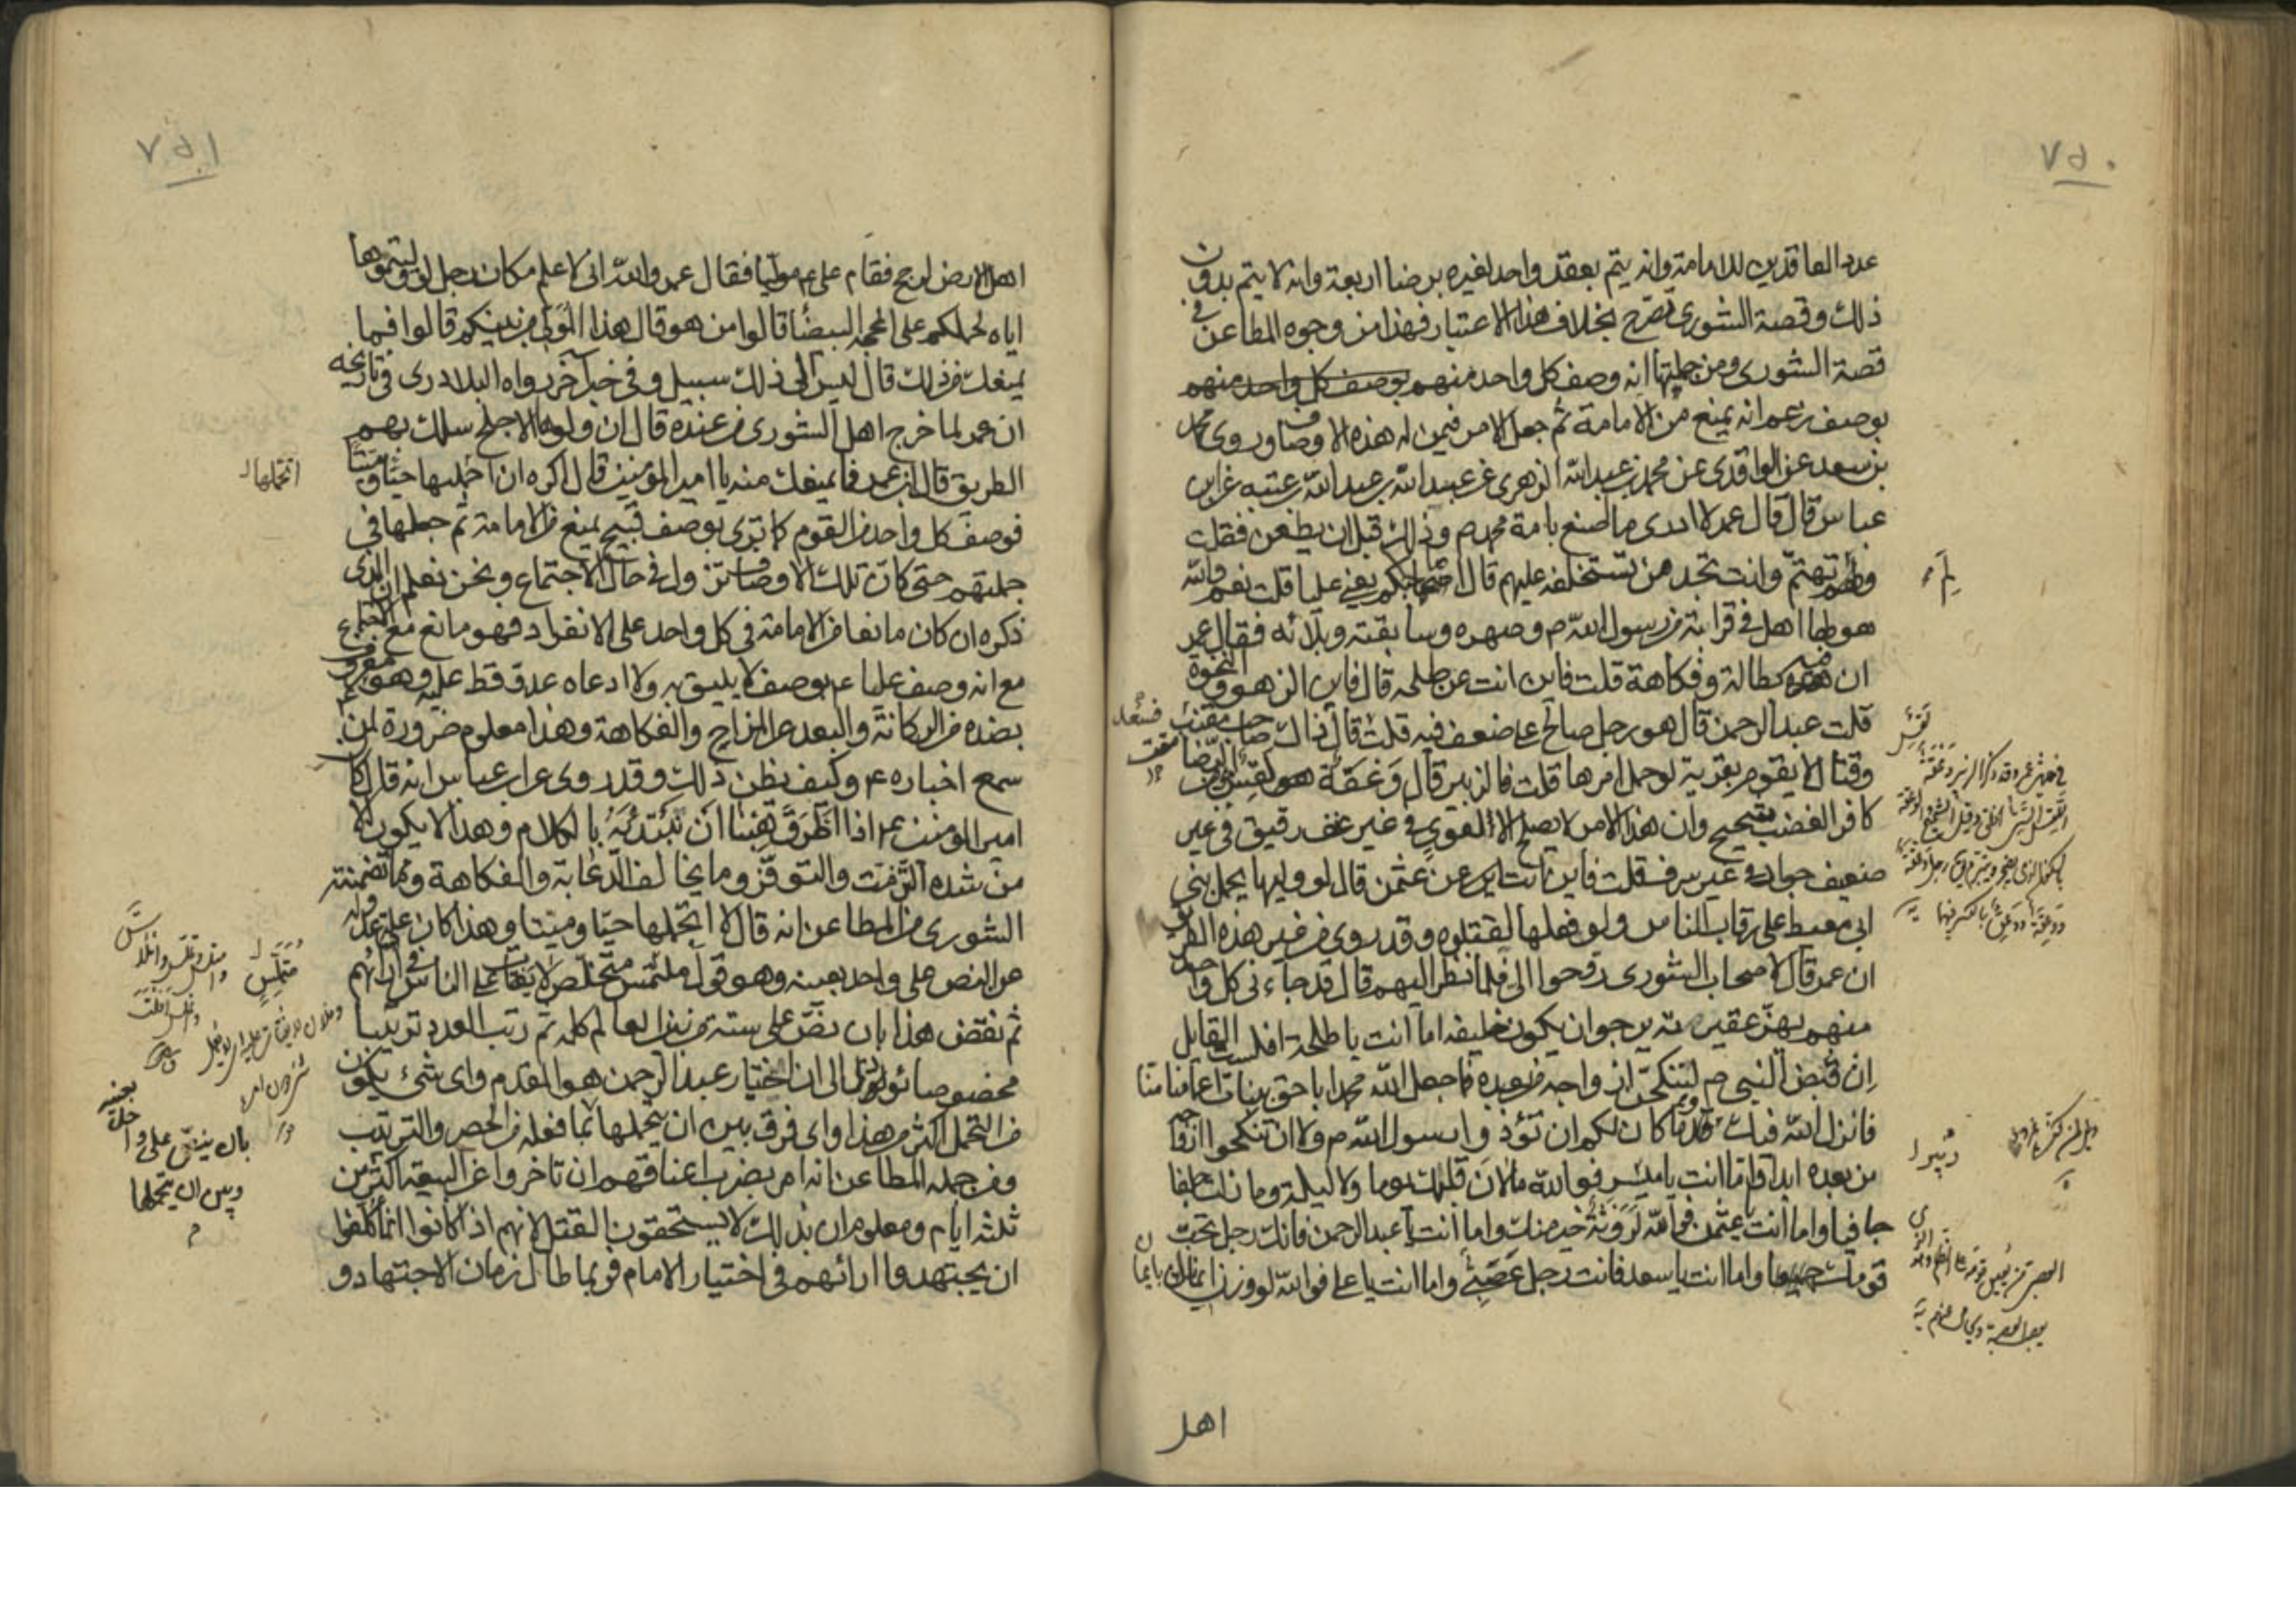 ٧٥٠
عدد العاقدين للامامة وانه يتم بعقد واحد لغيره برضا اربعة وانه لا يتم بدون
ذلك وقصة الشورى تصرح بخلاف هذا الاعتبار فهذا من وجوه المطاعن في
قصة الشورى ومن جملتها انه وصف كل واحد منهم بوصف كل واحد منهم
بوصف زعم انه يمنع من الامامة ثم جعل الامر فيمن له هذه الاوصاف وروى محمد
بن سعد عن الواقدى عن محمد بن عبد الله الزهرى عن عبيد الله بن عبد الله بن عتبه عن ابن
عباس قال قال عمر لا ادرى ما اصنع بامة محمد ص وذلك قبل ان يطعن فقلت
ولم تهتم وانت تجد من تستخلفه عليهم قال اصاحبكم يعنى عليا قلت نعم والله
هو لها اهل فى قرابته من رسول الله ص وصهره وسابقته وبلائه فقال عمر
ان فيه بطالة وفكاهة قلت فاين انت عن طلحه قال فاين الزهو والنخوة
قلت عبد الرحمن قال هو رجل صالح على ضعف فيه قلت فسعد قال ذاك صاحب مقنب
وقتال لا يقوم بقرية لو حمل امرها قلت فالزبير قال وعقة لقس مؤمن الرضا
كافر الغضب شحيح وان هذا الامر لا يصلح الا لقوى فى غير عنف رقيق فى غير
ضعيف جواد فى غير سرف قلت فاين انت عن عثمن قال لو وليها يحمل بنى
ابى معيط على رقاب الناس ولو فعلها لقتلوه وقد روى من غير هذه الطريق
ان عمر قال لاصحاب الشورى روحوا الى فلما نظر اليهم قال قد جاءنى كل واحد
منهم يهز عقيرته يرجو ان يكون خليفه اما انت يا طلحة افلست القايل
ان قبض النبى ص لننكحن ازواجه من بعده فما جعل الله محمدا باحق ببنات اعمامنا منا
فانزل الله فيك وما كان لكم ان تؤذوا رسول الله ص ولا ان تنكحوا ازواجه
من بعده ابدا واما انت يا زبير فوالله ما لان قلبك يوما ولا ليلة وما زلت جلفا
جافيا واما انت يا عثمن فوالله لروثة خير منك واما انت يا عبد الرحمن فانك رجل عاجز تحب
قومك جميعا واما انت يا سعد فانت رجل عصبى واما انت يا على فوالله لو وزن ايمانك بايمان
اهل
٧٥١
اهل الارض لرجح فقام على ع موليا فقال عمر والله انى لاعلم مكان رجل لو وليتموها
اياه لحملكم على المحجه البيضا قالوا من هو قال هذا المولى من بينكم قالوا فما
يمنعك من ذلك قال ليس الى ذلك سبيل وفى خبر آخر رواه البلاذرى فى تاريخه
ان عمر لما خرج اهل الشورى من عنده قال ان ولوها الاجلح سلك بهم
الطريق قال ابن عمر فما يمنعك منه يا امير المؤمنين قال اكره ان احملها حيا وميتا
اتحملها
فوصف كل واحد من القوم كما ترى بوصف قبيح يمنع من الامامة ثم جعلها فى
جملتهم حتى كان تلك الاوصاف تزول فى حال الاجتماع ونحن نعلم ان الذى
ذكره ان كان مانعا من الامامة فى كل واحد على الانفراد فهو مانع مع الاجتماع
مع انه وصف عليا ع بوصف لا يليق به ولا ادعاه عدو قط عليه وهو معروف
بضده من الركانة والبعد عن المزاح والفكاهة وهذا معلوم ضرورة لمن
سمع اخباره ع وكيف يظن ذلك وقد روى عن ابن عباس انه قال كان
امير المومنين ع اذا اطرق هبنا ان نبتدئه بالكلام وهذا لا يكون الا
من شدة التزمت والتوقر وما يخالف الدعابة والفكاهة ومما تضمنته
الشورى من المطاعن انه قال لا اتحملها حيا وميتا وهذا كان علة عدوله
عن النص على واحد بعينه وهو قول متملس متخلص لا يفتات على الناس فى ارائهم
ثم نقض هذا بان نص على ستة من بين العالم كله ثم رتب العدد ترتيبا
مخصوصا يؤول الى ان اختيار عبد الرحمن هو المقدم واى شئ يكون
من التحمل اكثر من هذا واى فرق بين ان يتحملها بما فعله من الحصر والترتيب
بان ينص على واحد بعينه
وبين ان يتحملها
ومن جمله المطاعن انه امر بضرب اعناقهم ان تاخروا عن البيعة اكثر من
ثلثه ايام ومعلوم ان بذلك لا يستحقون القتل لانهم اذا كانوا انما كلفوا
ان يجتهدوا ارائهم فى اختيار الامام فربما طال زمان الاجتهاد و